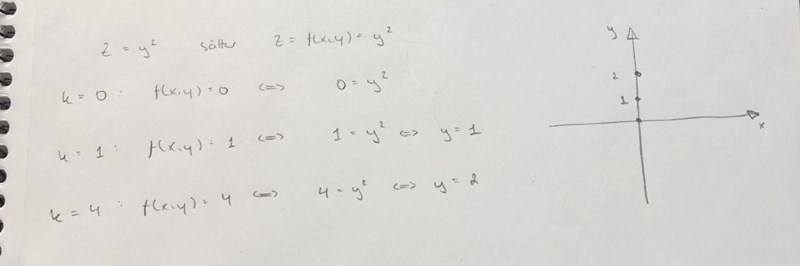 z = y² sätter z = f(x,y) = y²
k = 0 : f(x,y) = 0 <=> 0 = y²
k = 1 : f(x,y) = 1 <=> 1 = y² <=> y = 1
k = 4 : f(x,y) = 4 <=> 4 = y² <=> y = 2
y
2
1
x